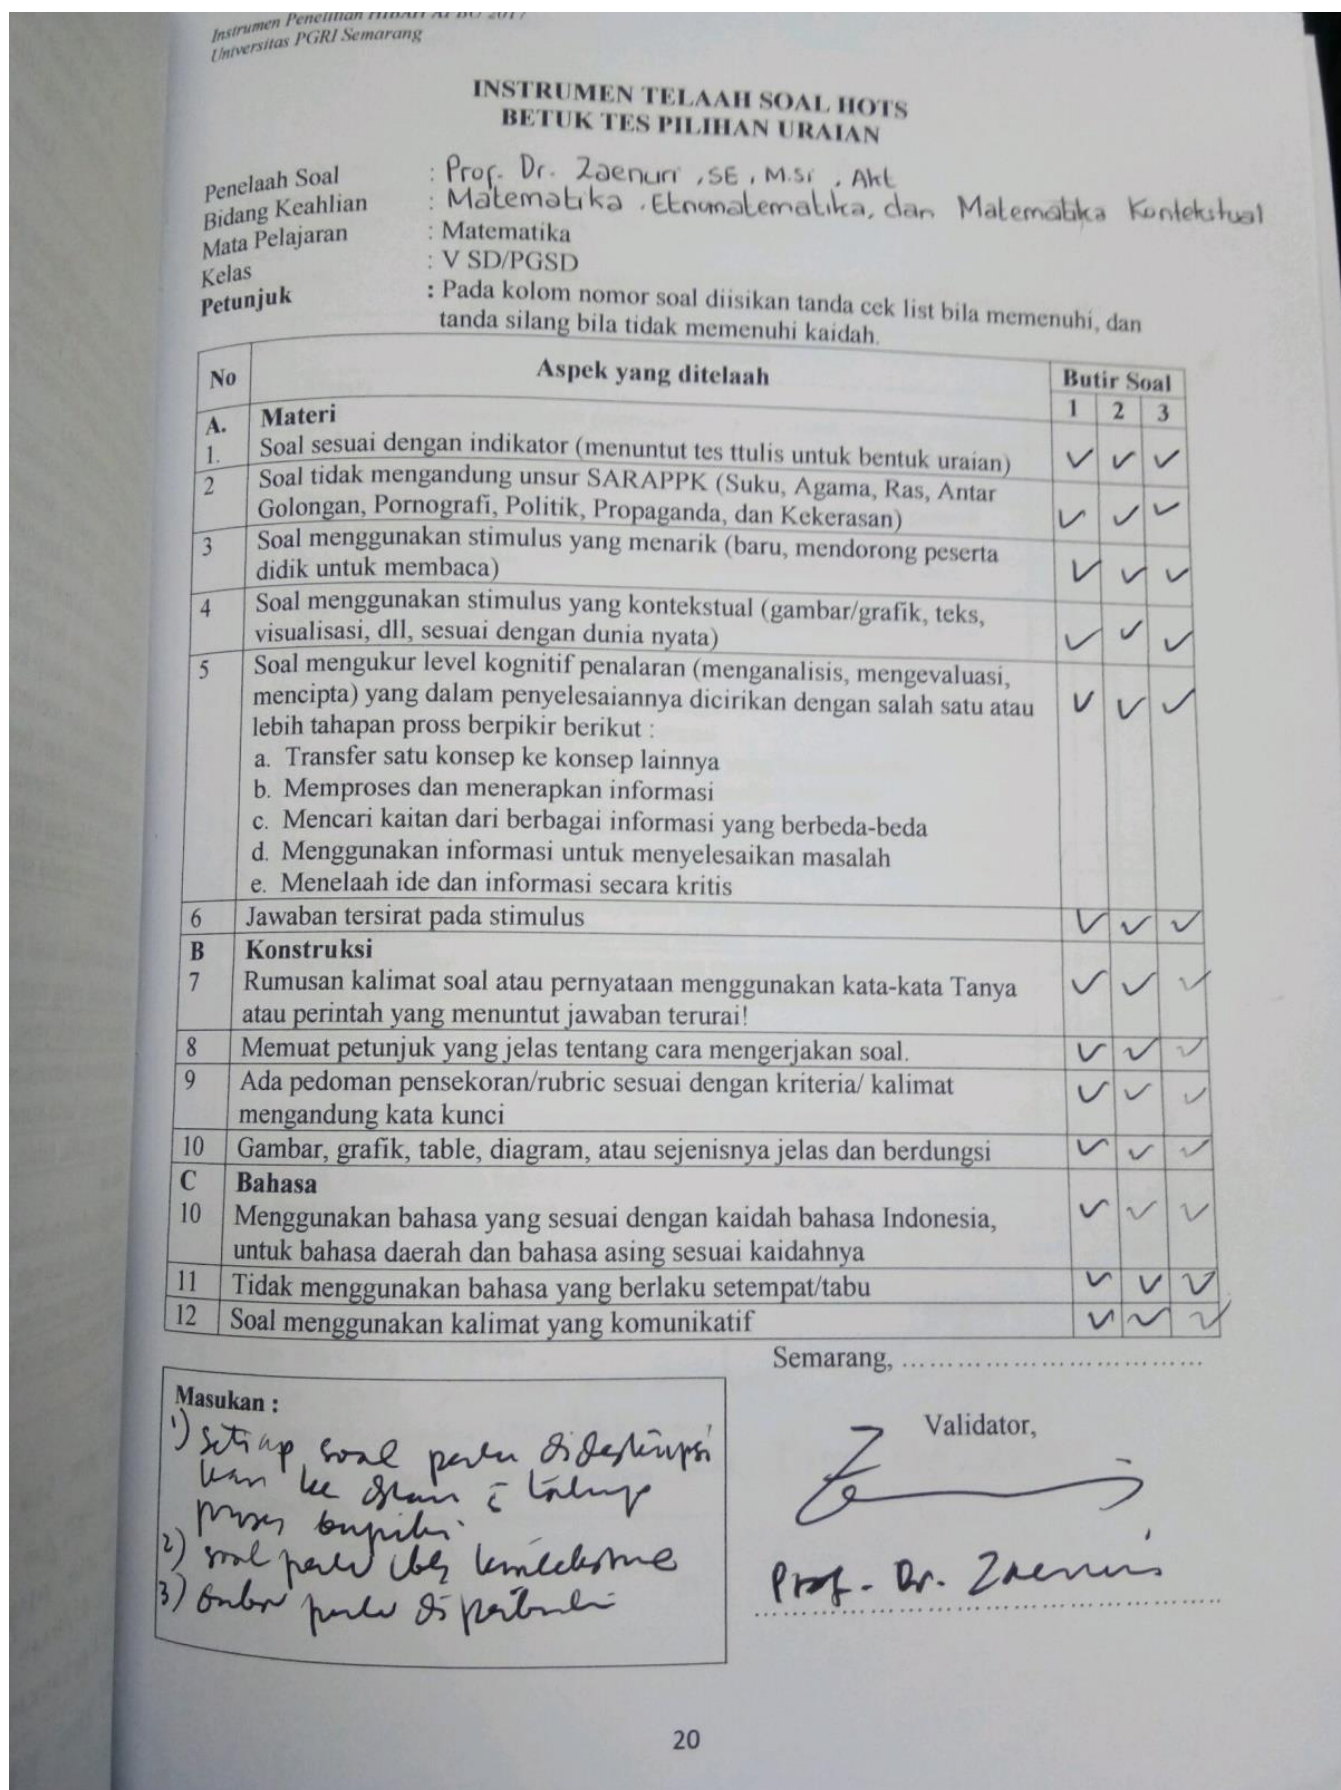 Instrumen Penelitian HIBAH APBU 2017
Universitas PGRI Semarang
INSTRUMEN TELAAH SOAL HOTS
BETUK TES PILIHAN URAIAN
Penelaah Soal : Prof. Dr. Zaenuri, SE, M.Si, Akt
Bidang Keahlian : Matematika, Etnomatematika, dan Matematika Kontekstual
Mata Pelajaran : Matematika
Kelas : V SD/PGSD
Petunjuk : Pada kolom nomor soal diisikan tanda cek list bila memenuhi, dan
tanda silang bila tidak memenuhi kaidah.
No Aspek yang ditelaah Butir Soal
1 2 3
A. Materi
1. Soal sesuai dengan indikator (menuntut tes ttulis untuk bentuk uraian) ✓ ✓ ✓
2 Soal tidak mengandung unsur SARAPPK (Suku, Agama, Ras, Antar
Golongan, Pornografi, Politik, Propaganda, dan Kekerasan) ✓ ✓ ✓
3 Soal menggunakan stimulus yang menarik (baru, mendorong peserta
didik untuk membaca) ✓ ✓ ✓
4 Soal menggunakan stimulus yang kontekstual (gambar/grafik, teks,
visualisasi, dll, sesuai dengan dunia nyata) ✓ ✓ ✓
5 Soal mengukur level kognitif penalaran (menganalisis, mengevaluasi,
mencipta) yang dalam penyelesaiannya dicirikan dengan salah satu atau ✓ ✓ ✓
lebih tahapan pross berpikir berikut :
a. Transfer satu konsep ke konsep lainnya
b. Memproses dan menerapkan informasi
c. Mencari kaitan dari berbagai informasi yang berbeda-beda
d. Menggunakan informasi untuk menyelesaikan masalah
e. Menelaah ide dan informasi secara kritis
6 Jawaban tersirat pada stimulus ✓ ✓ ✓
B Konstruksi
7 Rumusan kalimat soal atau pernyataan menggunakan kata-kata Tanya ✓ ✓ ✓
atau perintah yang menuntut jawaban terurai!
8 Memuat petunjuk yang jelas tentang cara mengerjakan soal. ✓ ✓ ✓
9 Ada pedoman pensekoran/rubric sesuai dengan kriteria/ kalimat ✓ ✓ ✓
mengandung kata kunci
10 Gambar, grafik, table, diagram, atau sejenisnya jelas dan berdungsi ✓ ✓ ✓
C Bahasa
10 Menggunakan bahasa yang sesuai dengan kaidah bahasa Indonesia, ✓ ✓ ✓
untuk bahasa daerah dan bahasa asing sesuai kaidahnya
11 Tidak menggunakan bahasa yang berlaku setempat/tabu ✓ ✓ ✓
12 Soal menggunakan kalimat yang komunikatif ✓ ✓ ✓
Semarang, ....................................
Masukan :
Validator,
1) setiap soal perlu dideskripsi
kan ke
proses berpikir
2) soal perlu
3) perlu diperbaiki
Prof. Dr. Zaenuri
20